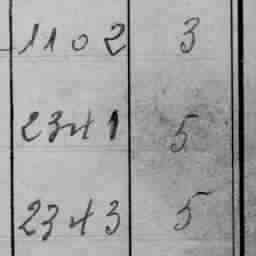 1102 3
2341 5
2343 5